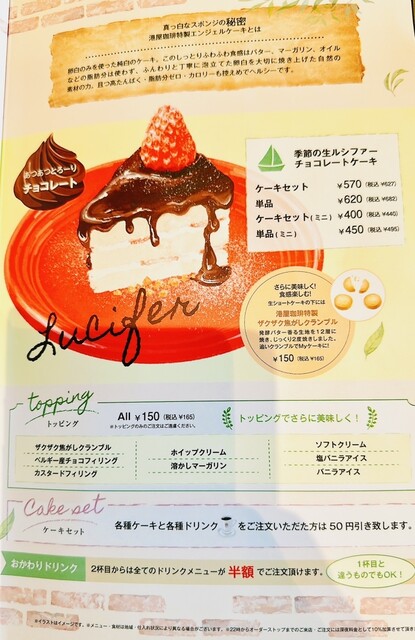 真っ白なスポンジの秘密
港屋珈琲特製エンジェルケーキとは
卵白のみを使った純白のケーキ。このしっとりふわふわ食感はバター、マーガリン、オイル
などの脂肪分は使わず、ふんわりと丁寧に泡立てた卵白を大切に焼き上げた自然の
素材の力。且つ高たんぱく・脂肪分ゼロ・カロリーも控えめでヘルシーです。
あつあつとろーり
チョコレート
季節の生ルシファー
チョコレートケーキ
ケーキセット ¥570 (税込 ¥627)
単品 ¥620 (税込 ¥682)
ケーキセット(ミニ) ¥400 (税込 ¥440)
単品(ミニ) ¥450 (税込 ¥495)
Lucifer
さらに美味しく!
食感楽しむ!
生ショートケーキの下には
港屋珈琲特製
ザクザク焦がしクランブル
発酵バター香る生地を12層に
焼き、じっくり2度焼きしました。
追いクランブルでMyケーキに!
¥150 (税込 ¥165)
topping
トッピング
All ¥150 (税込 ¥165)
※トッピングのみのご注文はご遠慮ください。
トッピングでさらに美味しく!
ザクザク焦がしクランブル
ベルギー産チョコフィリング
カスタードフィリング
ホイップクリーム
溶かしマーガリン
ソフトクリーム
塩バニラアイス
バニラアイス
Cake set
ケーキセット
各種ケーキと各種ドリンク をご注文いただた方は50円引き致します。
おかわりドリンク
2杯目からは全てのドリンクメニューが 半額 でご注文頂けます。
1杯目と
違うものでもOK!
※イラストはイメージです。※メニュー・食材は地域・仕入れ状況により異なる場合がございます。※22時からオーダーストップまでのご来店・ご注文には深夜料金として10%加算させて頂